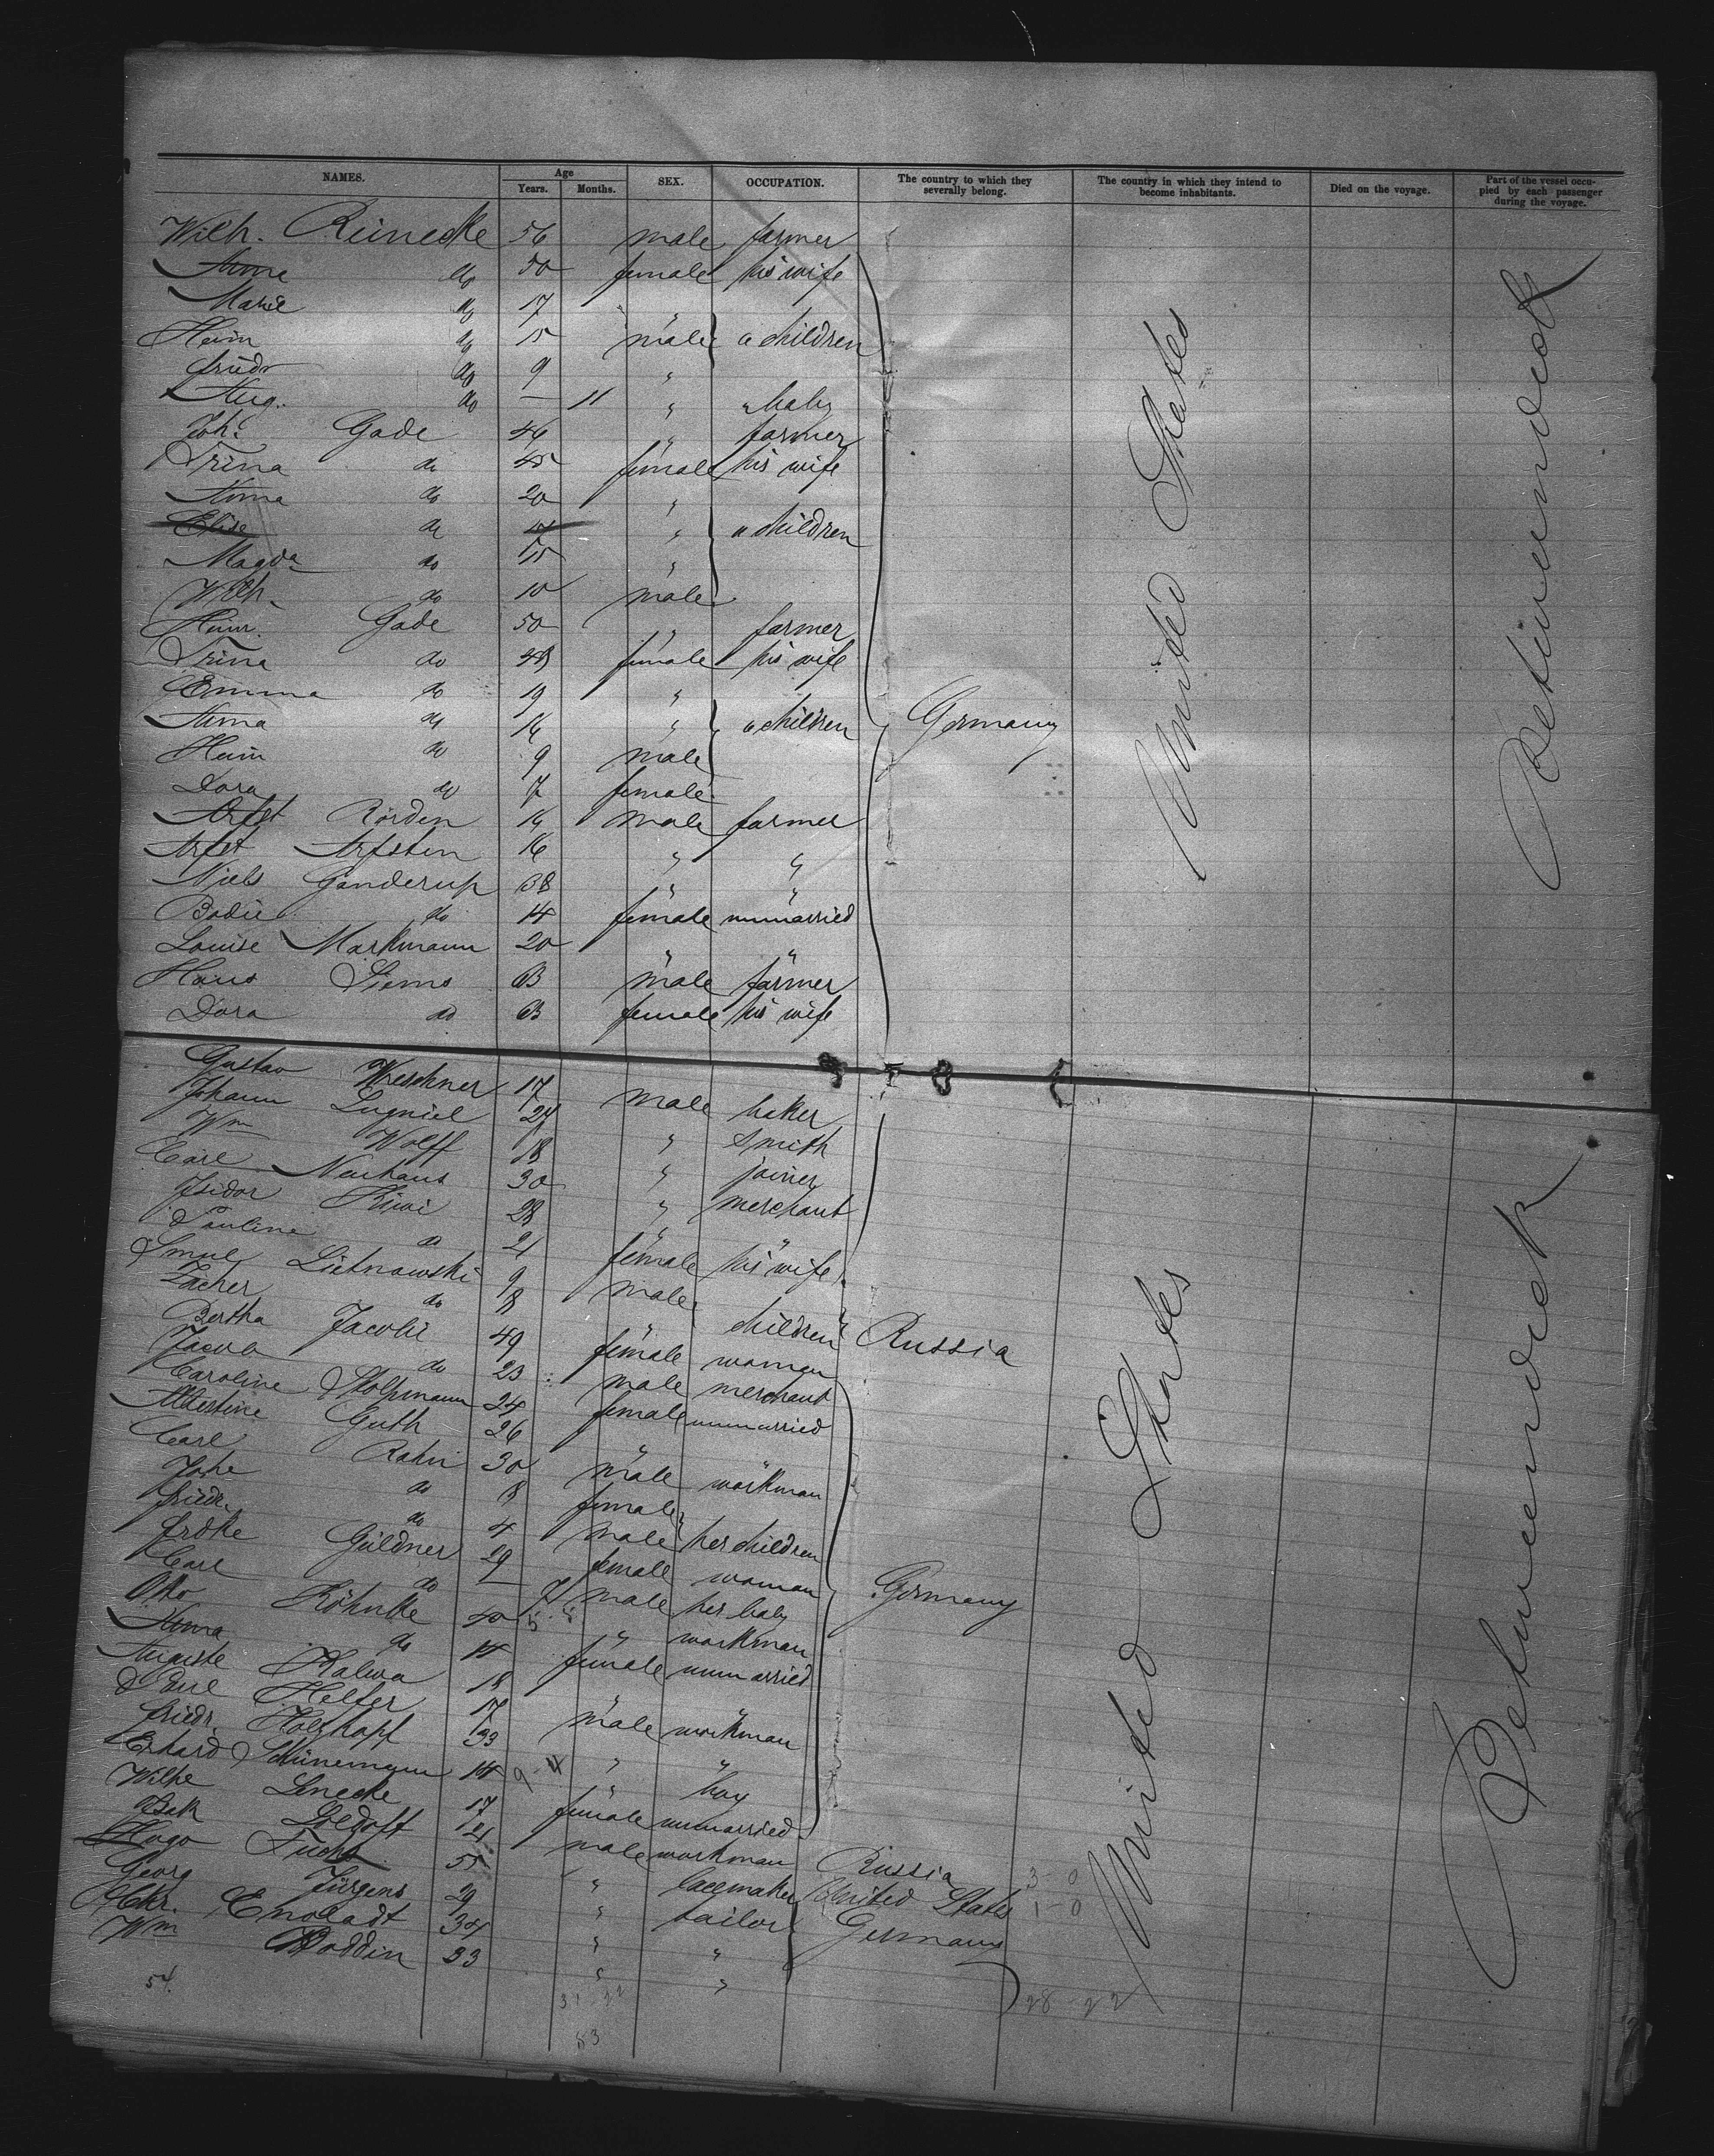 NAMES. Age Years. Months. SEX. OCCUPATION. The country to which they severally belong. The country in which they intend to become inhabitants. Died on the voyage. Part of the vessel occupied by each passenger during the voyage.
Wilh. Reinecke 56 male farmer
Anna do 50 female his wife
Marie do 17 "
Heinr do 15 male " children
Friedr do 9 "
Aug. do — 11 " " baby
Joh. Gade 46 " farmer
Trina do 45 female his wife
Anna do 20 "
Elise do 17 " " children
Magda do 15 "
Wilh. do 10 male
Heinr. Gade 50 " farmer
Trina do 48 female his wife
Emma do 19 "
Anna do 16 " " children Germany United States Betweendeck
Heinr do 9 male
Dora do 7 female
Arfst Rörden 16 male farmer
Arfst Arfsten 16 " "
Niels Ganderup 38 " "
Bodil do 14 female unmarried
Louise Markmann 20 " "
Hans Siems 63 male farmer
Dora do 63 female his wife
Gustav 17 male baker
Johann 24 " smith
Wm Wolff 18 " joiner
Carl Neuhaus 30 " merchant
Isidor Kiwi 28 " "
Pauline do 21 female his wife
Smul 9 male
do 8 " children Russia
Bertha Jacobi 49 female woman
Jacob do 23 male merchant
Caroline Stolpmann 24 female unmarried
Albertine Guth 26 " "
Carl Rahn 30 male workman
Johe do 8 female
Friedr. do 4 male her children
Frdke Güldner 29 female woman
Carl do — 7 male her baby Germany United States Betweendeck
Otto Röhnke 40 " workman
Anna do 14 female unmarried
Auguste Kalwa 18 " "
Paul Helfer 17 male workman
Friedr. Holzkopf 33 " "
Erhard Schünemann 14 9-4 " boy
Wilhe 17 female unmarried
Isak 21 male workman Russia 3-0
Hugo Fuchs 55 " lacemaker United States 1-0
Georg Jürgens 29 " tailor Germany
Chr. 34 " "
Wm Boddin 33 " " 28-22
54. 31-22
83